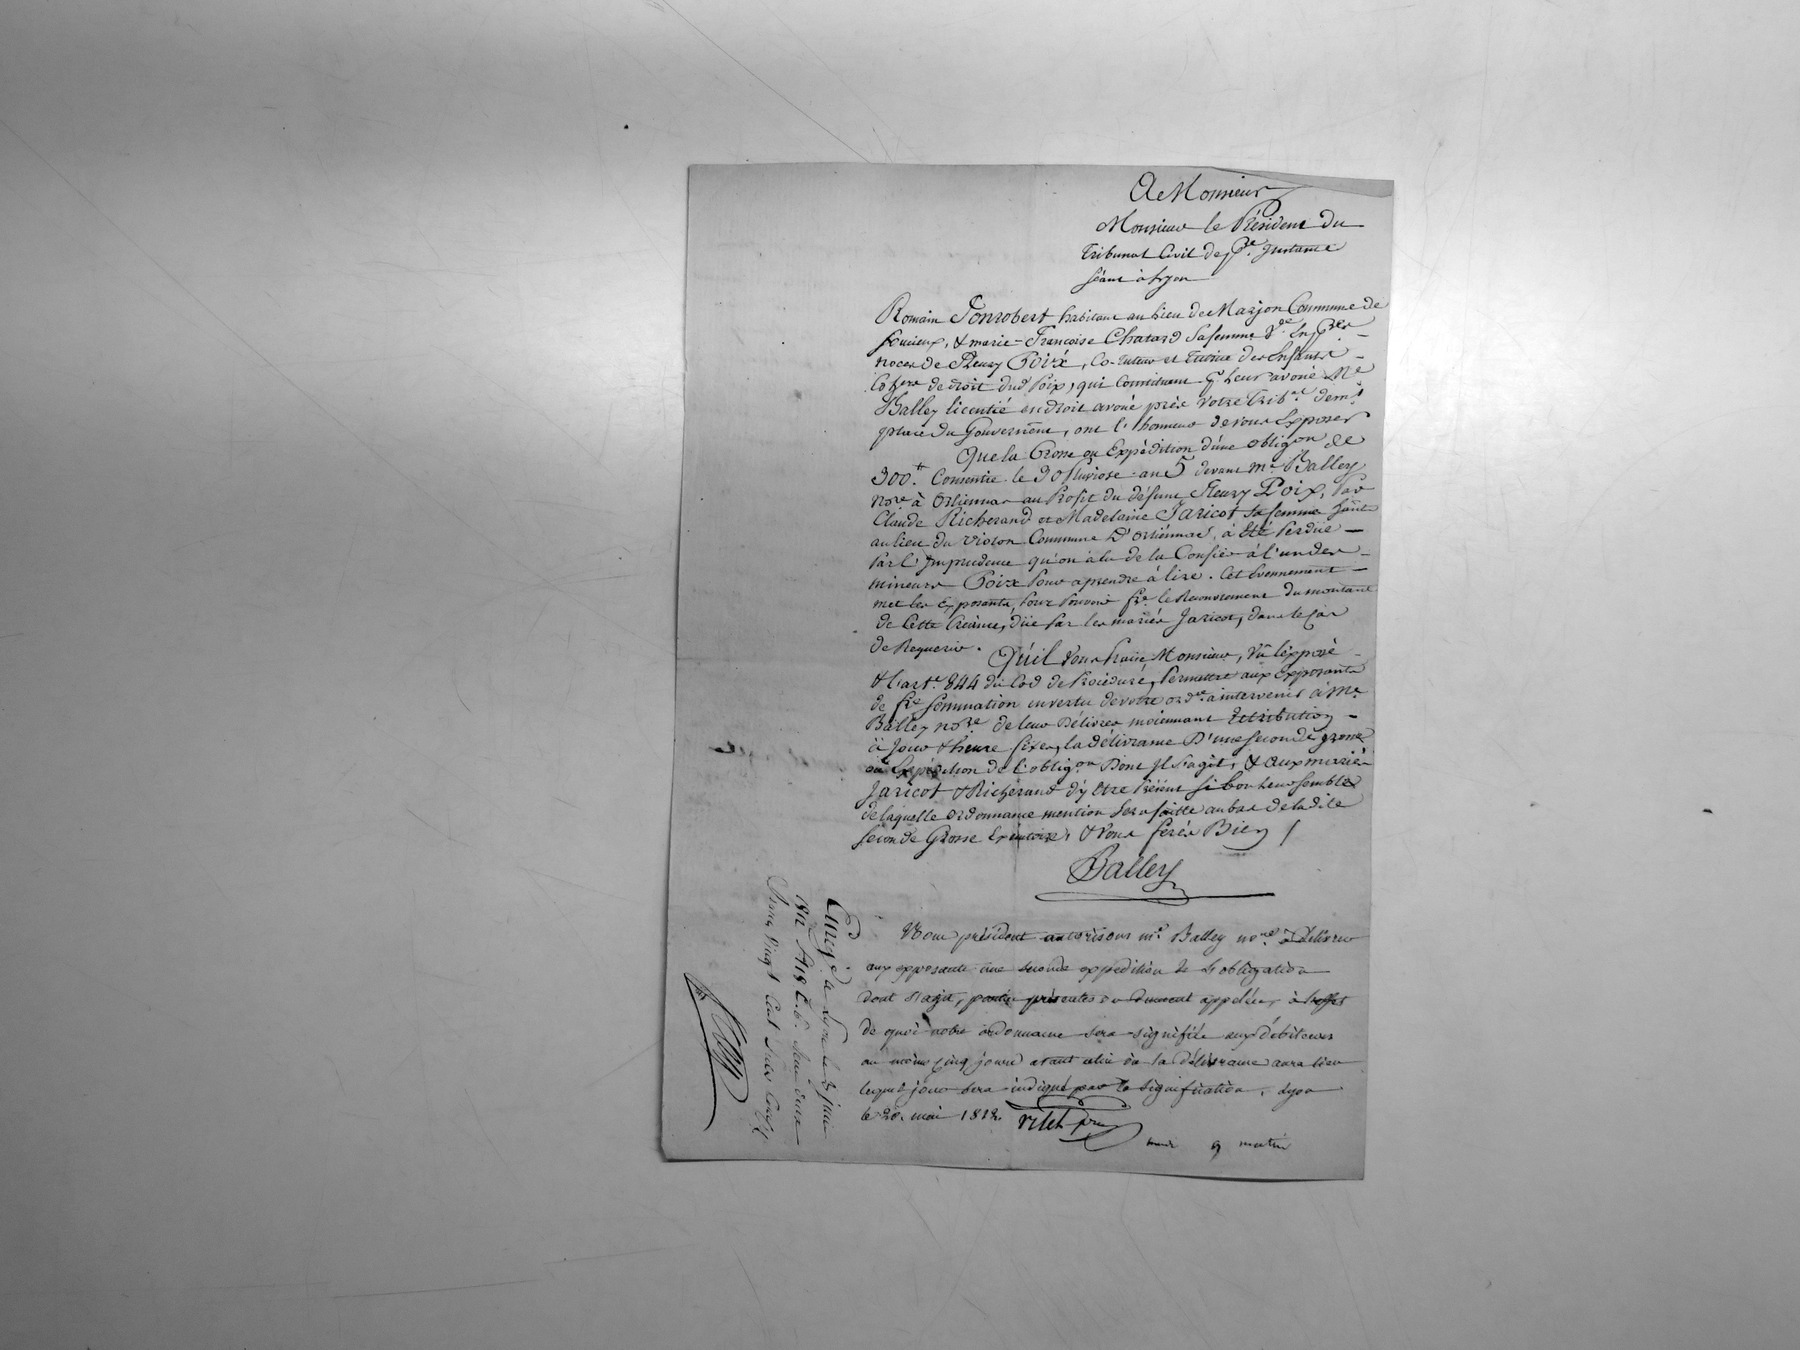 A Monsieur
Monsieur le Président du
Tribunal Civil de 1re. Instance
séant à Lyon
Romain Fonrobert habitant au lieu de Marjon Commune de
Soucieux, & marie-Francoise Chatard sa femme Ve. en 1eres
noces de Fleury Poix, Co-tuteur et tutrice des Enfants
de droit dud. Poix, qui Constituent pr. leur avoué Me
Balley licentié en droit avoué près votre tribal demt
place du Gouvernemt, ont l'honneur de vous Exposer
Que la Grosse ou Expédition d'une obligon de
300tt. Consentie le 30 Pluviose an 5 devant Me. Balley
nore à Orliennas au Profit du défunt Fleury Poix, Par
Claude Richerand et Madelaine Jaricot sa femme
au lieu du violon Commune D'Orliennas, à Eté Perdue
Par L'Imprudence qu'on à eu de la Confier à l'un des
mineurs Poix Pour aprendre à lire. Cet Evennement
met les Exposants, Pour Pouvoir fre. le Recouvrement du montant
de Cette Créance, düe Par les mariés Jaricot, dans le Cas
de Requerir.
Qu'il Vous Plaise Monsieur, Vû l'exposé
& l'arte. 844 du Cod de Procédure, Permettre aux Exposants
de fre sommation en vertu de votre orde à intervenir à Me
Balley nore. de leur Délivrer moiennant Rétribution
à Jour & heure fixes, la délivrance D'une seconde grosse
ou Expédition de l'obligon Dont Il s'agit, & aux mariés
Jaricot & Richerand d'y Etre Présent si bon leur semble
de laquelle ordonnance mention sera faitte au bas de ladite
seconde Grosse Exécutoire, & Vous ferés Bien /
Balley
Nous président autorisons me. Balley nore. à délivrer
aux exposants une seconde expédition de l'obligation
dont s'agit, partie présentes ou duement appelées, à l'effet
de quoi notre ordonnance sera signifiée aux débiteurs
au moins cinq jours avant celui où la délivrance aura lieu
lequel jour sera indiqué par la signification. Lyon
le 20. mai 1812.
9 matin
Enregé à Lyon le 3 juin
1812